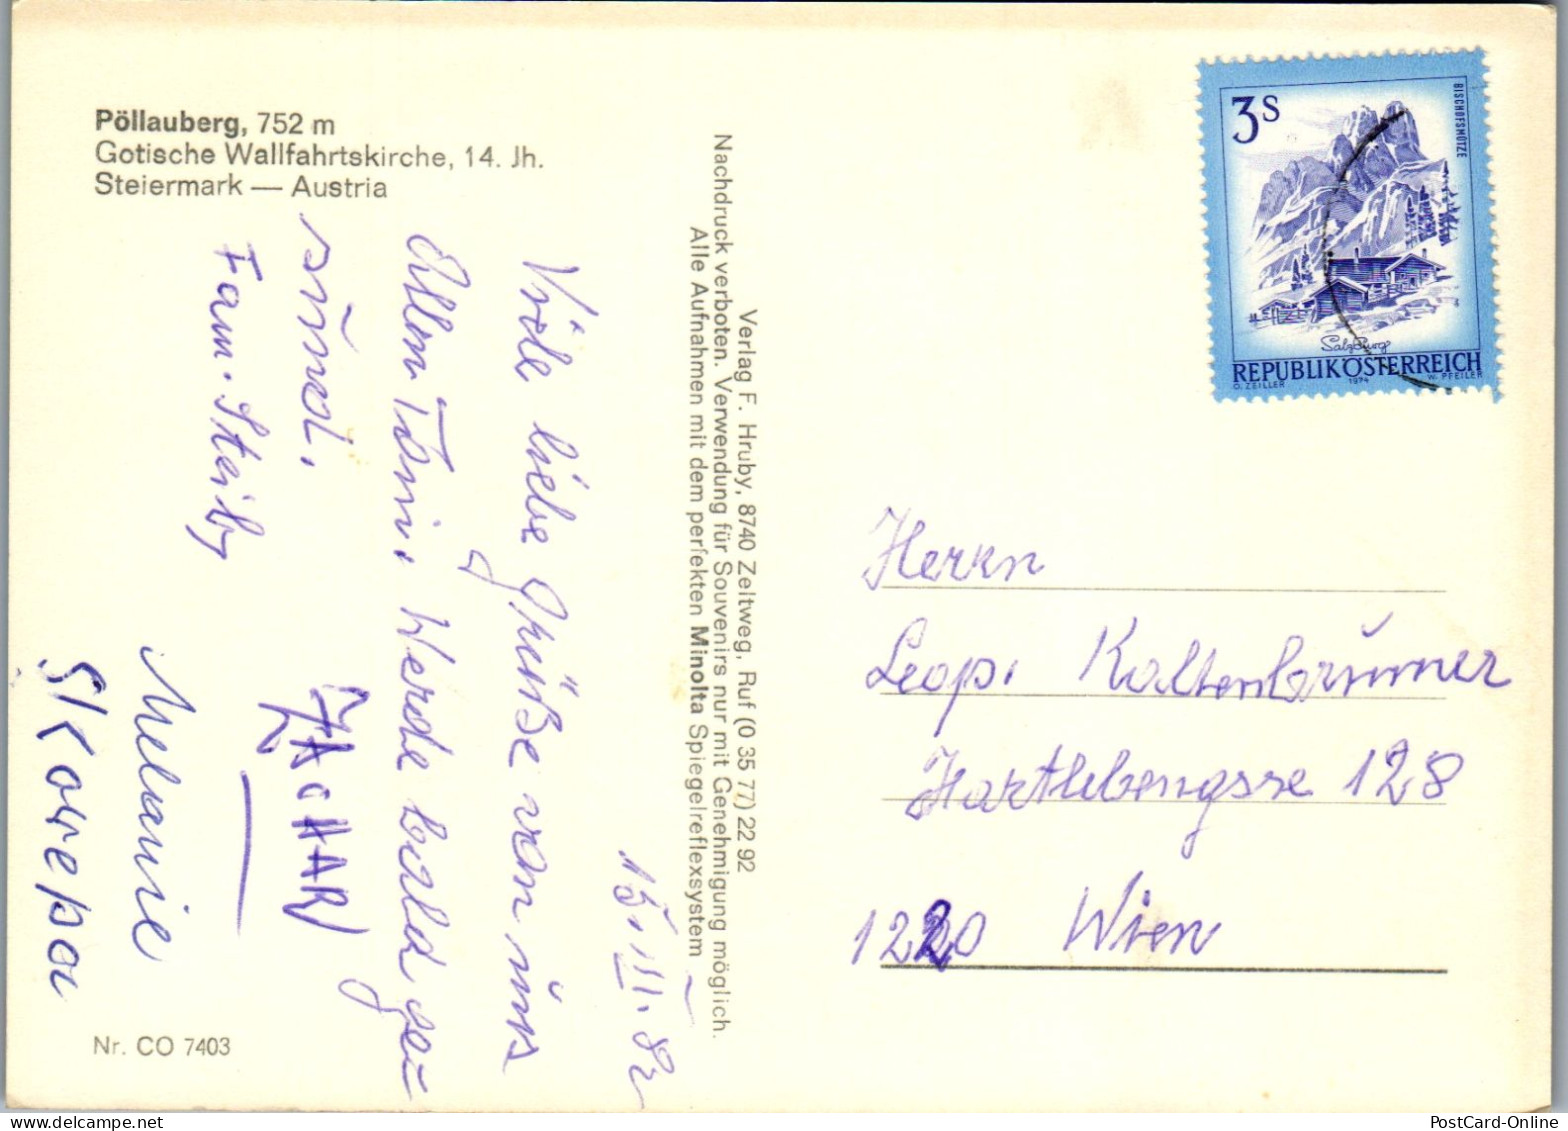 Pöllauberg, 752 m
Gotische Wallfahrtskirche, 14. Jh.
Steiermark — Austria
15. III. 82
Viele liebe Grüße von uns
Allen Toni. Werde bald ge-
sund.
Fam. Steiby
ZACHARI
Melanie
Verlag F. Hruby, 8740 Zeltweg, Ruf (0 35 77) 22 92
Nachdruck verboten. Verwendung für Souvenirs nur mit Genehmigung möglich.
Alle Aufnahmen mit dem perfekten Minolta Spiegelreflexsystem
Nr. CO 7403
3S
BISCHOFSMÜTZE
Salzburg
REPUBLIK ÖSTERREICH
O. ZEILLER 1974 W. PFEILER
Herrn
Leop. Kaltenbrunner
Hartlebengsse 128
1220 Wien
PostCard-Online